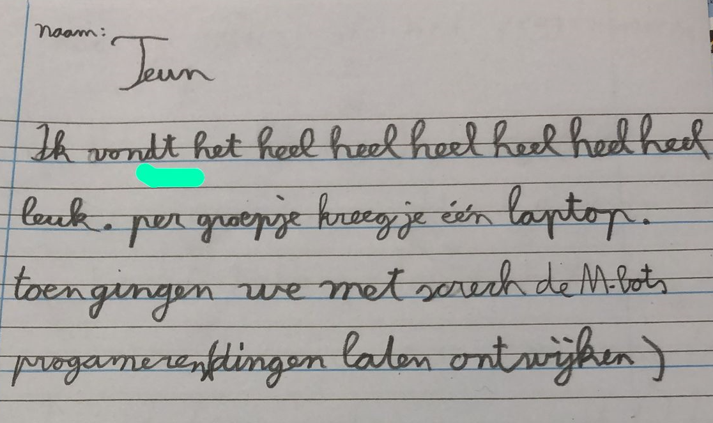 naam: Teun
Ik vondt het heel heel heel heel heel heel
leuk. per groepje kreeg je één laptop.
toen gingen we met screch de M-bots
progameren/dingen laten ontwijken)